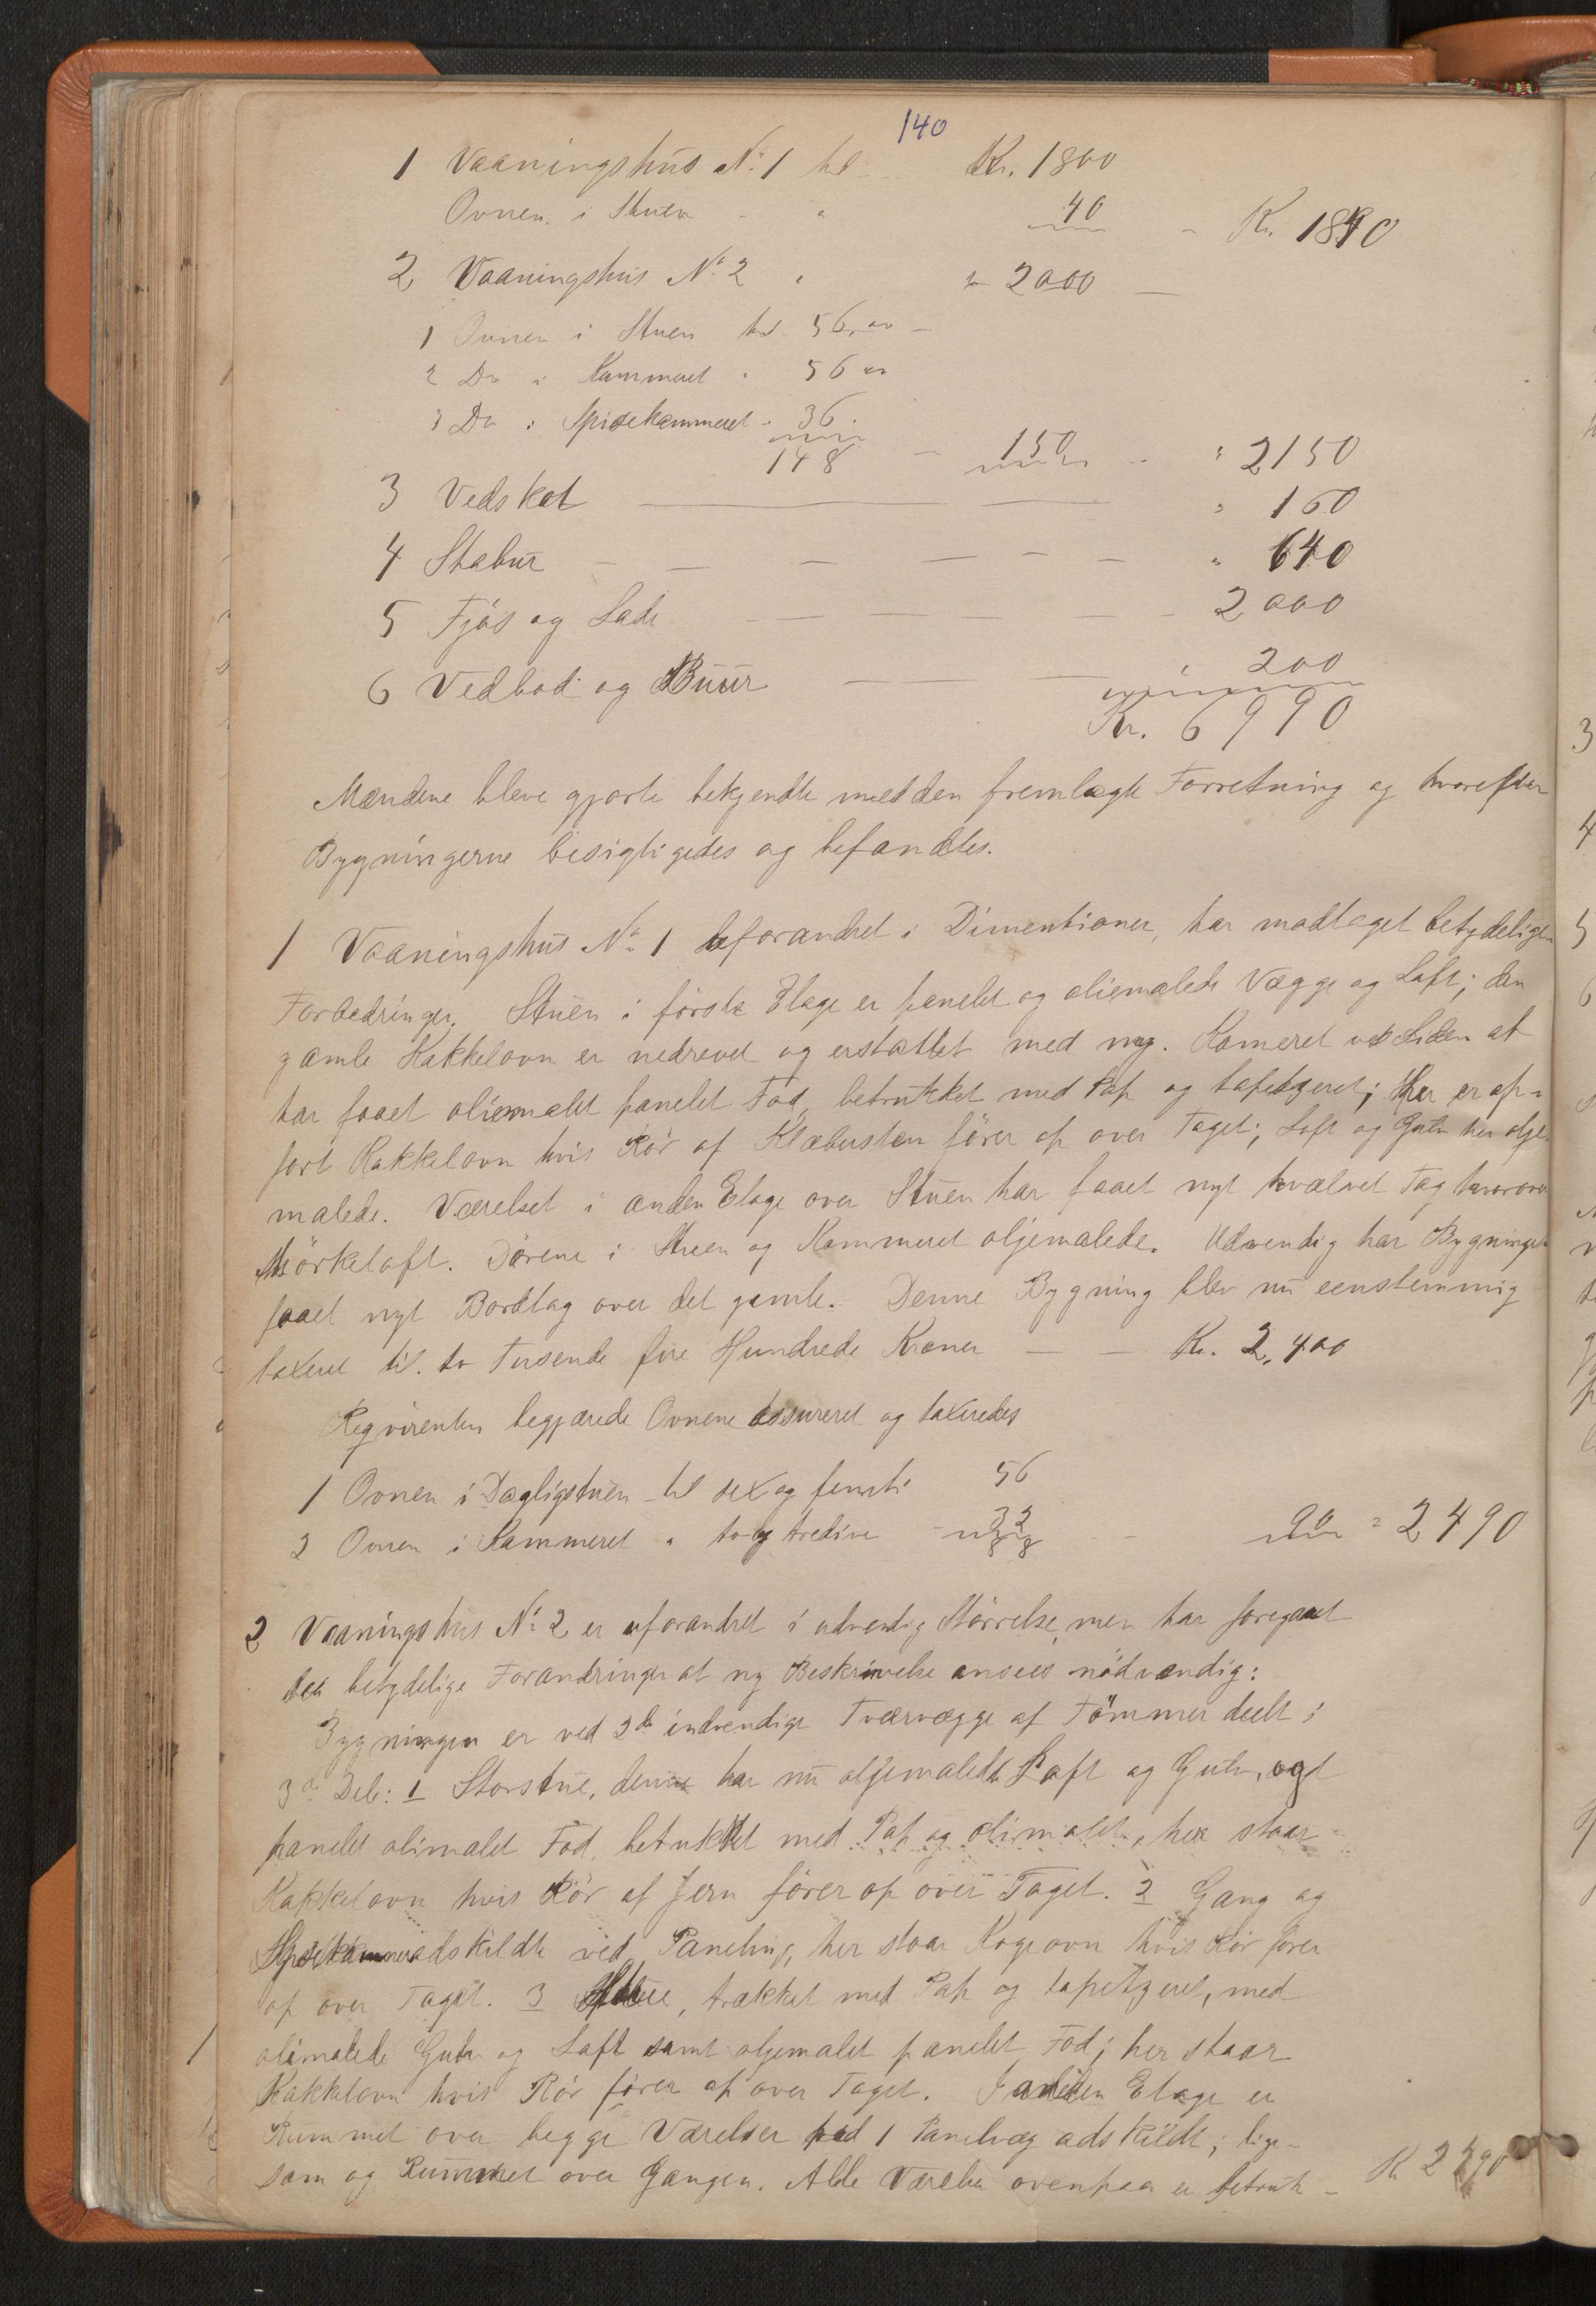 140
1 Vaaningshus No 1 til Kr. 1800
Ovnen i Stuen " 40 - Kr. 1840
2 Vaaningshus No 2 " " 2000 —
1 Ovnen i Stuen til 56,00 —
2 Do i Kammeret " 56 00
3 Do i Spisekammeret " 36.
148 — 150 - " 2150
3 Vedskot — " 160
4 Stabur — " 640
5 Fjös og Lade — 2000
6 Vedbod og Buur — " 200
Kr. 6990
Mændene bleve gjorte bekjendte med den fremlagte Forretning og hvorefter
Bygningerne besigtigedes og befandtes.
1 Vaaningshus No 1 uforandret i Dimentioner, har modtaget betydelige
Forbedringer. Stuen i første Etage er panelet og oliemalede Vægge og Loft; den
gamle Kakkelovn er nedrevet og erstattet med ny. Kameret ved Siden at
har faaet oliemalet panelet Fod, betrukket med Pap og tapetzeret; Her er op-
fört Kakkelovn hvis Rör af Klæbersten förer op over Taget; Loft og Gulv her olje-
malede. Værelset i anden Etage over Stuen har faaet nyt hvælvet Tag hvorover
Mörkeloft. Dörene i Stuen og Kammeret oljemalede. Udvendig har Bygningen
faaet nyt Bordtag over det gamle. Denne Bygning blev nu eenstemmig
taxeret til to Tusende fire Hundrede Kroner — — Kr. 2,400
Reqvirenten begjærede Ovnene assureret og taxeredes
1 Ovnen i Dagligstuen til sex og femti 56
2 Ovnen i Kammeret " to og tredive - 32 - 90 = 2490
2 Vaaningshus No 2 er uforandret i udvendig Störrelse, men har foregaaet
saa betydelige Forandringer at ny Beskrivelse ansees nödvændig:
Bygningen er ved 2de indvendige Tværvægge af Tömmer deelt i
3de Dele: 1 Storstue, denne har nu oljemalede Loft og Gulv, og
panelet olimalet Fod, betrukket med Pap og olimalet, her staar
Kakkelovn hvis Rör af Jern förer op over Taget. 2 Gang og
Spisekammer adskildte ved Paneling, her staar Kogeovn hvis Rör förer
op over Taget. 3 Stue, trækket med Pap og tapetzeret, med
olimalede Gulv og Loft samt oljemalet panelet Fod; her staar
Kakkelovn hvis Rör förer op over Taget. I anden Etage er
Rummet over begge Værelser ved 1 Panelvæg adskildt; lige-
som og Rummet over Gangen. Alle Værelser ovenpaa er betruk- K 2490